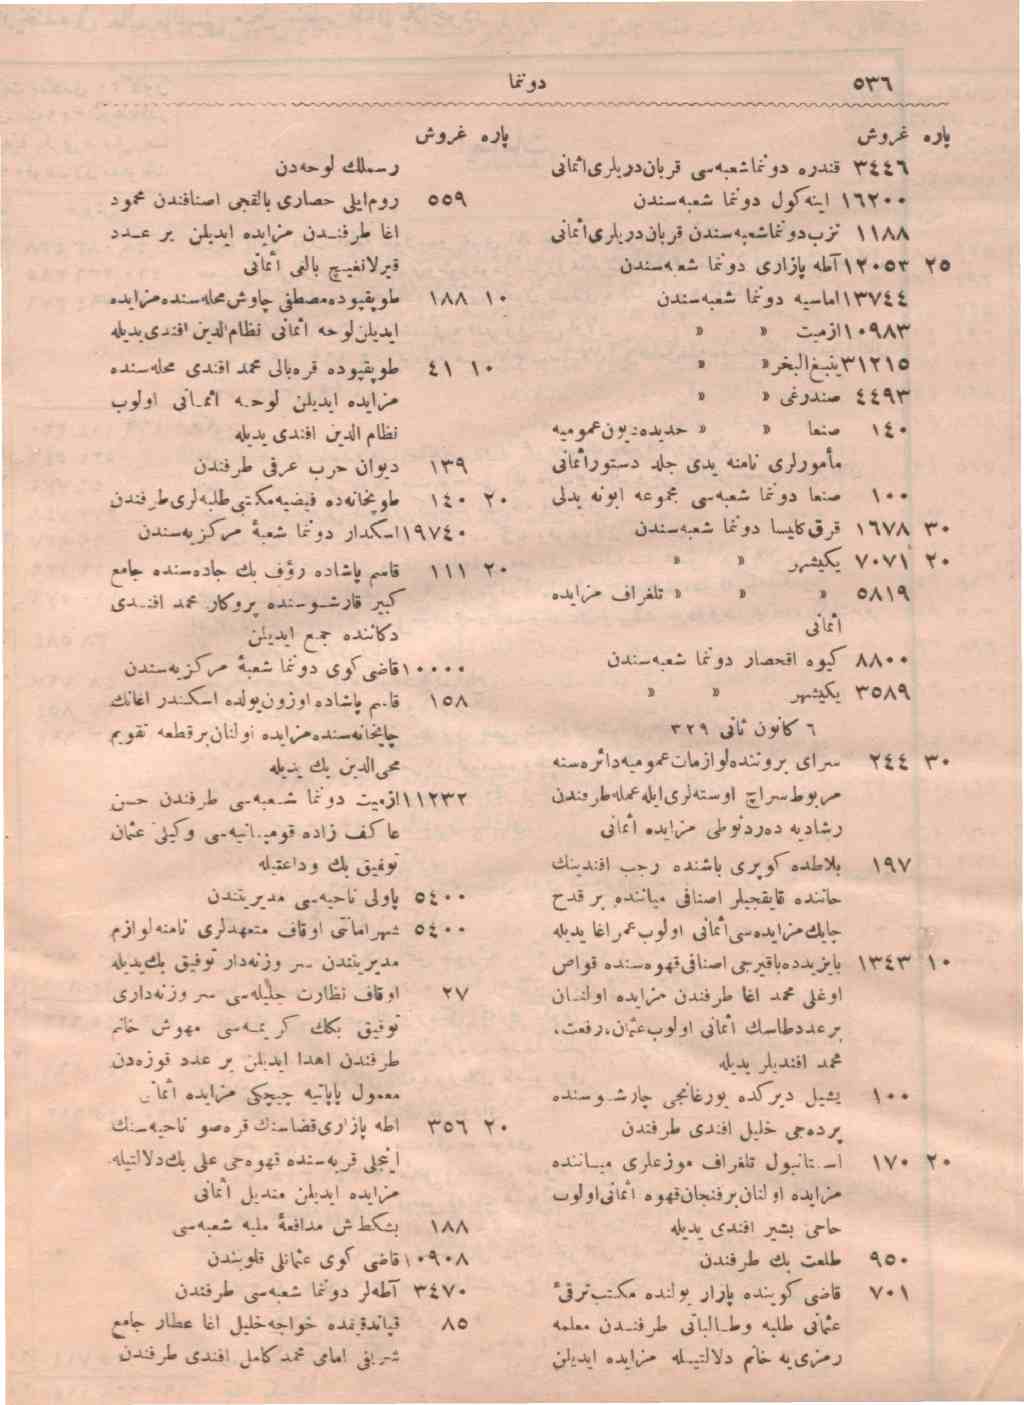 ٥٣٦
دونما
پاره غروش
٣٤٤٦ قندره دونماشعبه‌سی قربان‌دریلری‌اثمانی
١٦٢٠٠ اینه‌کول دونما شعبه‌سندن
١١٨٨ نزب‌دونماشعبه‌سندن قربان‌دریلری‌اثمانی
٢٥ ١٢٠٥٣ آطه پازاری دونما شعبه‌سندن
١٣٧٤٤ اماسیه دونما شعبه‌سندن
١٠٩٨٣ ازمیت » »
٣١٢١٥ ینبع‌البخر » »
٤٤٩٣ صندرغی » »
١٤٠ صنعا » » حدیده‌دیون‌عمومیه
مأمورلری نامنه یدی جلد دستوراثمانی
١٠٠ صنعا دونما شعبه‌سی مجموعه ابونه بدلی
٣٠ ١٦٧٨ قرق‌کلیسا دونما شعبه‌سندن
٢٠ ٧٠٧١ یکیشهر » »
٥٨١٩ » » » تلغراف مزایده
اثمانی
٨٨٠٠ کیوه اقحصار دونما شعبه‌سندن
٣٥٨٩ یکیشهر » »
٦ کانون ثانی ٣٢٩
٣٠ ٢٤٤ سرای برونده‌لوازمات‌عمومیه‌دائره‌سنه
مربوط‌سراج اوسته‌لری‌ایله‌عمله‌طرفندن
رشادیه ده‌ردنوطی مزایده اثمانی
١٩٧ بلاطده کوپری باشنده رجب افندینك
خاننده قایقجیلر اصنافی میاننده بر قدح
چایك‌مزایده‌سی‌اثمانی اولوب‌عمراغا یدیله
١٠ ١٣٤٣ بایزیدده‌باقیرجی اصنافی‌قهوه‌سنده قواص
اوغلی محمد اغا طرفندن مزایده اولنان
برعددطاسك اثمانی اولوب‌عثمان،رفعت،
محمد افندیلر یدیله
١٠٠ یشیل دیرکده یورغانجی چارشوسنده
پرده‌جی خلیل افندی طرفندن
٢٠ ١٧٠ استانبول تلغراف موزعلری میاننده
مزایده اولنان‌برفنجان‌قهوه اثمانی‌اولوب
حاجی بشیر افندی یدیله
٩٥٠ طلعت بك طرفندن
٧٠١ قاضی کوینده پازار یولنده مکتب‌ترقیٔ
عثمانی طلبه وطالباتی طرفندن معلمه
رمزی‌یه خانم دلالتیله مزایده ایدیلن
پاره غروش
رسملك لوحه‌دن
٥٥٩ روم‌ایلی حصاری بالقجی اصنافندن محمود
اغا طرفندن مزایده ایدیلن بر عدد
قیرلانغیج بالغی اثمانی
١٠ ١٨٨ طوپقپوده‌مصطفی چاوش‌محله‌سنده‌مزایده
ایدیلن‌لوحه اثمانی نظام‌الدین افندی‌یدیله
١٠ ٤١ طوپقپوده قره‌بالی محمد افندی محله‌سنده
مزایده ایدیلن لوحه اثمانی اولوب
نظام الدین افندی یدیله
١٣٩ دیوان حرب عرفی طرفندن
٢٠ ١٤٠ طوپخانه‌ده فیضیه‌مکتبی‌طلبه‌لری‌طرفندن
١٩٧٤٠ اسکدار دونما شعبهٔ مرکزیه‌سندن
٢٠ ١١١ قاسم پاشاده رؤف بك جاده‌سنده جامع
کبیر قارشوسنده پروکار محمد افندی
دکاننده جمع ایدیلن
١٠٠٠٠ قاضی‌کوی دونما شعبهٔ مرکزیه‌سندن
١٥٨ قاسم پاشاده اوزون‌یولده اسکندر اغانك
چایخانه‌سنده‌مزایده اولنان‌برقطعه تقویم
محی‌الدین بك یدیله
١١٢٣٢ ازمیت دونما شعبه‌سی طرفندن حسن
عاکف زاده قومپانیه‌سی وکیلی عثمان
توفیق بك وداعتیله
٥٤٠٠ پاولی ناحیه‌سی مدیریتندن
٥٤٠٠ شهرامانتی اوقاف متعهدلری نامنه‌لوازم
مدیریتندن سر وزنه‌دار توفیق بك‌یدیله
٢٧ اوقاف نظارت جلیله‌سی سر وزنه‌داری
توفیق بكك کریمه‌سی مهوش خانم
طرفندن اهدا ایدیلن بر عدد قوزه‌دن
معمول پاپاتیه چیچکی مزایده اثمانی
٢٠ ٣٥٦ اطه پازاری‌قضاسنك قره‌صو ناحیه‌سنك
اینجلی قریه‌سنده قهوه‌جی علی بك‌دلالتیله
مزایده ایدیلن مندیل اثمانی
١٨٨ بشکطاش مدافعهٔ ملیه شعبه‌سی
١٠٩٠٨ قاضی کوی عثمانلی قلوبندن
٣٤٧٠ آطه‌لر دونما شعبه‌سی طرفندن
٨٥ قپاندقیقده خواجه‌خلیل اغا عطار جامع
شریفی امامی محمدکامل افندی طرفندن